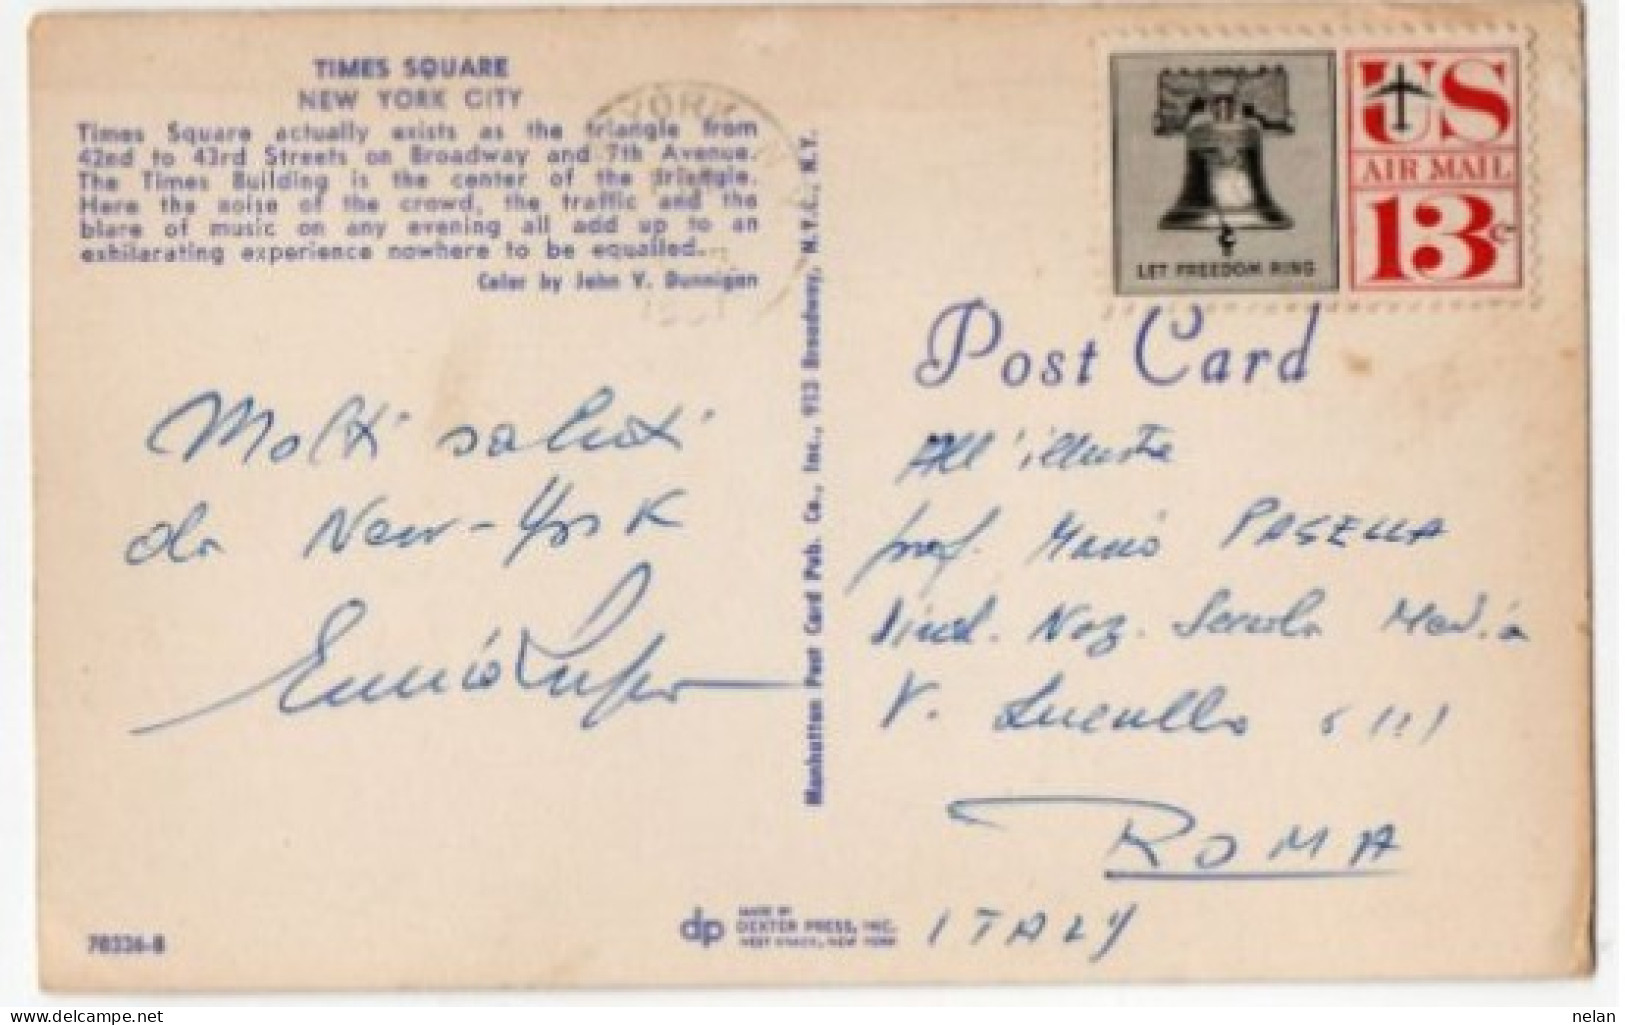 TIMES SQUARE
NEW YORK CITY
Times Square actually exists as the triangle from
42nd to 43rd Streets on Broadway and 7th Avenue.
The Times Building is the center of the triangle.
Here the noise of the crowd, the traffic and the
blare of music on any evening all add up to an
exhilarating experience nowhere to be equalled.
Color by John V. Dunnigan
YORK
Molti saluti
da New-York
Ennio
70336-B
Manhattan Post Card Pub. Co., Inc., 913 Broadway, N.Y.C., N.Y.
dp
MADE BY
DEXTER PRESS, INC.
WEST NYACK, NEW YORK
LET FREEDOM RING
US
AIR MAIL
13c
Post Card
All'illustre
prof. Mario PASELLA
Sind. Naz. Scuola Media
V. Lucullo
ROMA
ITALY
delcampe.net
nelan